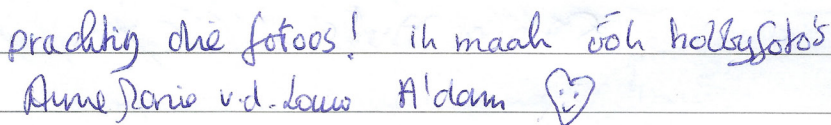 prachtig die fotoos! ik maak óók hobbyfoto's
Anne v.d. A'dam